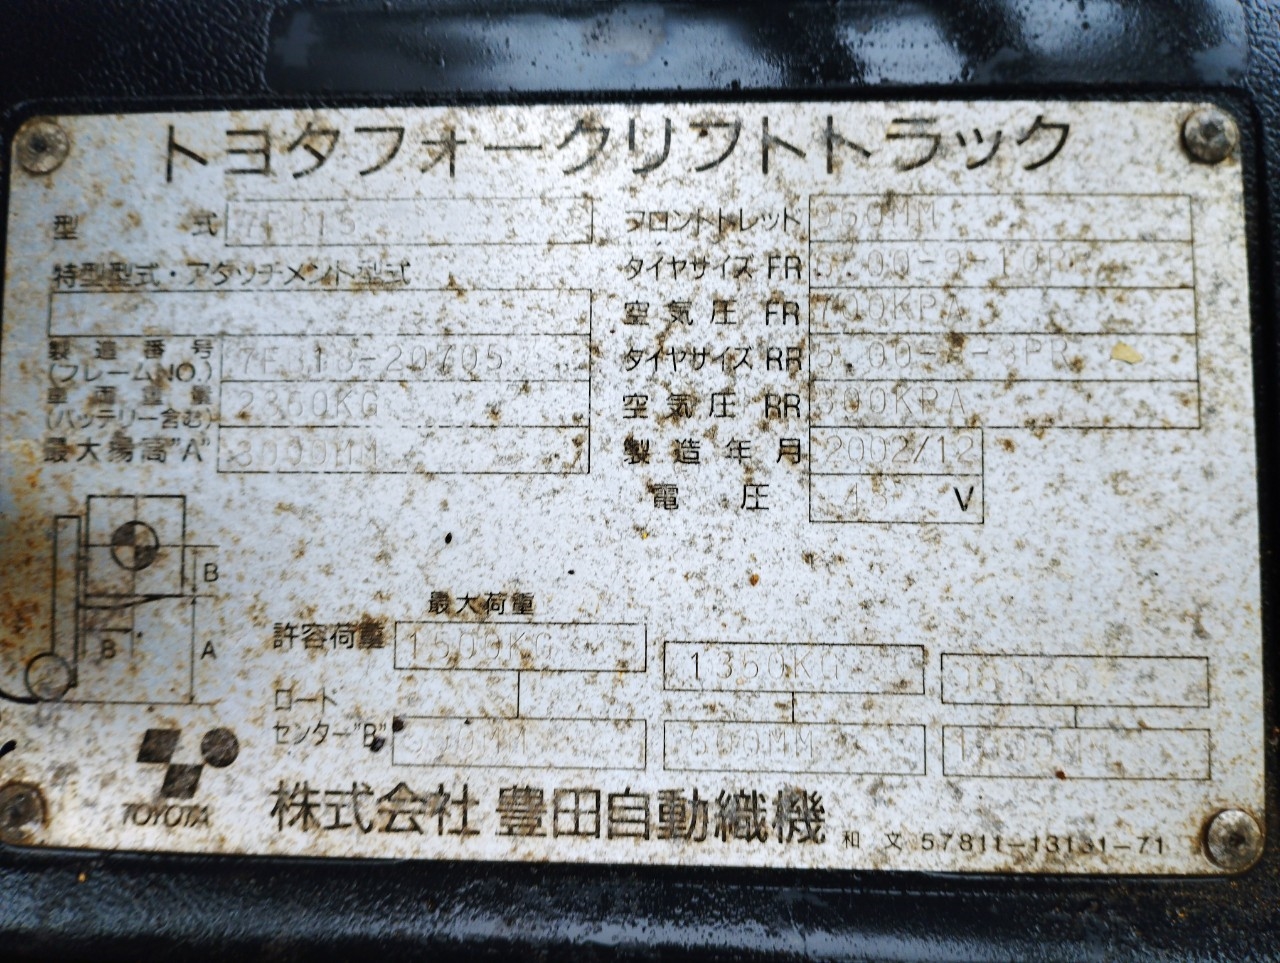 トヨタフォークリフトトラック
型 式
フロントトレッド 950MM
特型型式・アタッチメント型式
タイヤサイズ FR
空気圧 FR 700KPA
製造番号
(フレームNO.)
タイヤサイズ RR
車両重量 2360KG
(バッテリー含む)
空気圧 RR
最大揚高"A" 3000MM
製造年月 2002/12
電 圧 48 V
B
B
A
最大荷重
許容荷重 1500KG 1350KG
ロード
センター"B" 500MM 600MM
TOYOTA
株式会社 豊田自動織機
和 文 57811-13131-71